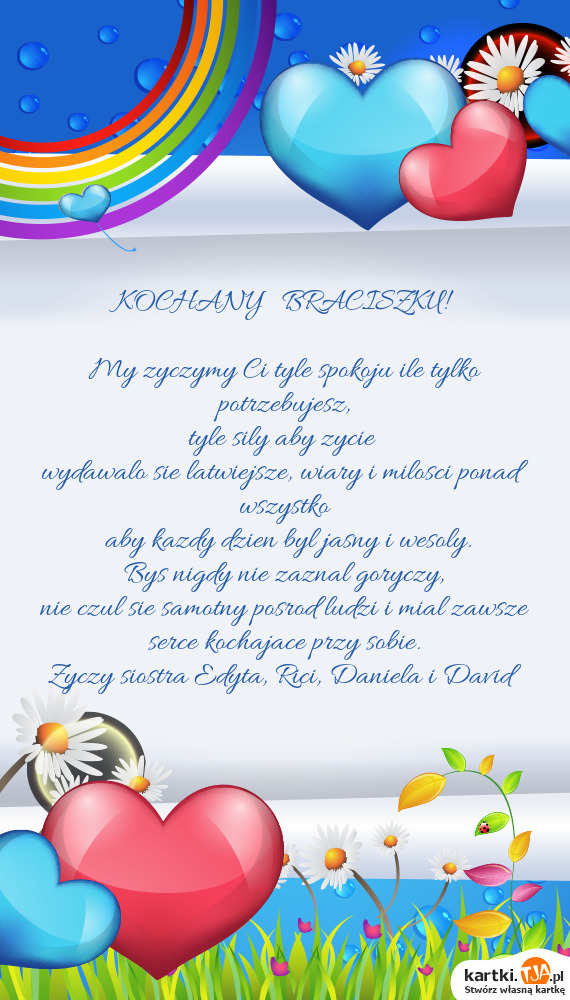 KOCHANY BRACISZKU!
My zyczymy Ci tyle spokoju ile tylko
potrzebujesz,
tyle sily aby zycie
wydawalo sie latwiejsze, wiary i milosci ponad
wszystko
aby kazdy dzien byl jasny i wesoly.
Bys nigdy nie zaznal goryczy,
nie czul sie samotny posrod ludzi i mial zawsze
serce kochajace przy sobie.
Zyczy siostra Edyta, Rici, Daniela i David
kartki.TJA.pl
Stwórz własną kartkę